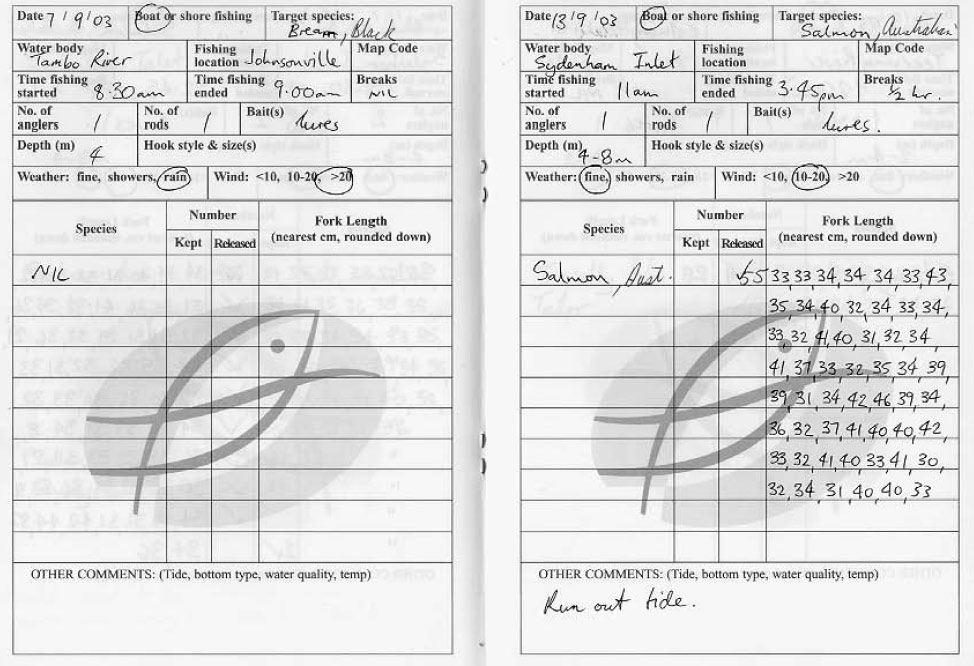 Date 7/9/03 Boat or shore fishing Target species: Bream, Black
Water body Tambo River Fishing location Johnsonville Map Code
Time fishing started 8.30am Time fishing ended 9.00am Breaks NIL
No. of anglers 1 No. of rods 1 Bait(s) lures
Depth (m) 4 Hook style & size(s)
Weather: fine, showers, rain Wind: <10, 10-20, >20
Species Number Fork Length
Kept Released (nearest cm, rounded down)
NIL
OTHER COMMENTS: (Tide, bottom type, water quality, temp)
Date 13/9/03 Boat or shore fishing Target species: Salmon, Australian
Water body Sydenham Inlet Fishing location Map Code
Time fishing started 11am Time fishing ended 3.45pm Breaks 1/2 hr.
No. of anglers 1 No. of rods 1 Bait(s) lures.
Depth (m) 4-8m Hook style & size(s)
Weather: fine, showers, rain Wind: <10, 10-20, >20
Species Number Fork Length
Kept Released (nearest cm, rounded down)
Salmon, Aust. 55 33, 33, 34, 34, 34, 33, 43,
35, 34, 40, 32, 34, 33, 34,
33, 32, 41, 40, 31, 32, 34
41, 37, 33, 32, 35, 34, 39
39, 31, 34, 42, 46, 39, 34,
36, 32, 37, 41, 40, 40, 42,
33, 32, 41, 40, 33, 41, 30,
32, 34, 31, 40, 40, 33
OTHER COMMENTS: (Tide, bottom type, water quality, temp)
Run out tide.